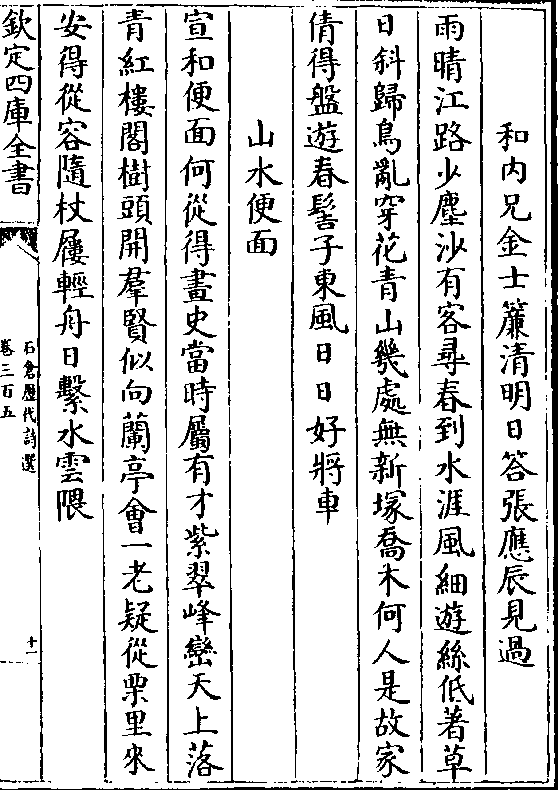 和内兄金士簾清明日答張應辰見過
雨晴江路少塵沙有客尋春到水涯風細遊絲低著草
日斜歸鳥亂穿花青山幾處無新塚喬木何人是故家
倩得盤遊春髻子東風日日好將車
山水便面
宣和便面何從得畫史當時屬有才紫翠峰巒天上落
青紅樓閣樹頭開羣賢似向蘭亭會一老疑從栗里來
安得從容隨杖屨輕舟日繫水雲隈
欽定四庫全書
石倉歷代詩選
卷三百五
十一